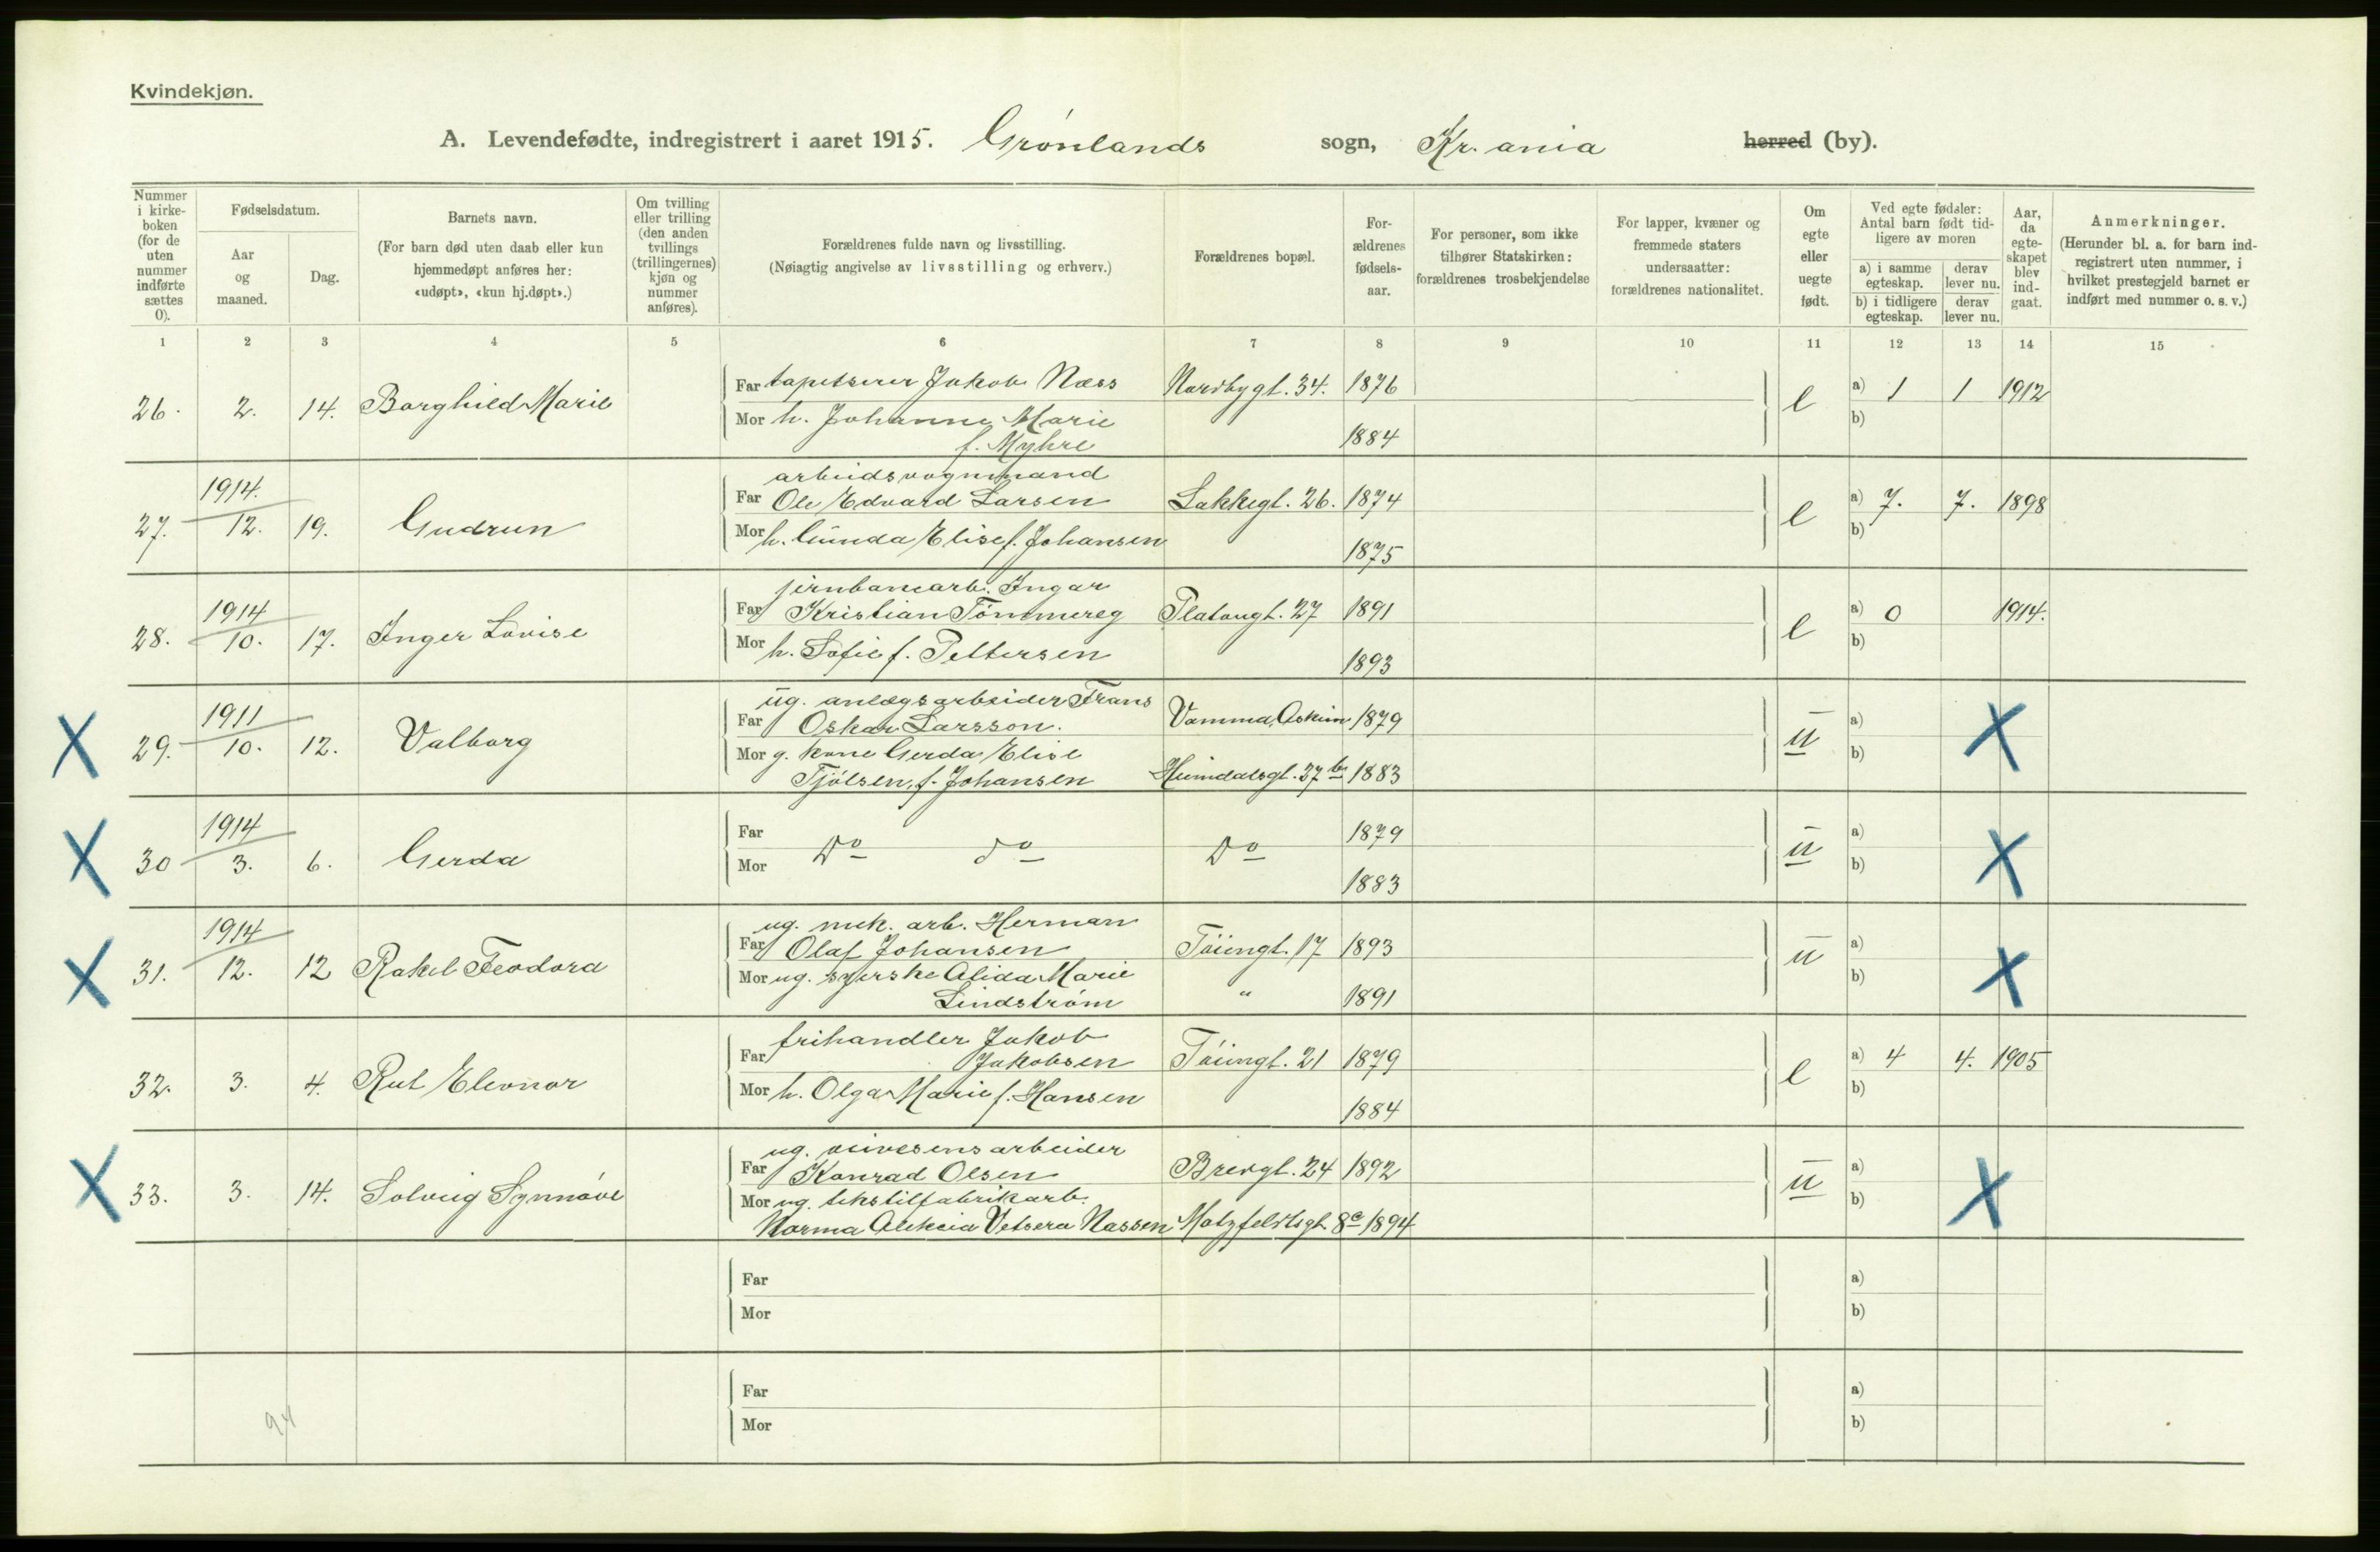 Kvindekjøn.
A. Levendefødte, indregistrert i aaret 1915. Grönlands sogn, Kr.ania herred (by).
Nummer i kirke-boken (for de uten nummer indførte sættes 0).
Fødselsdatum.
Aar og maaned.
Dag.
Barnets navn.
(For barn død uten daab eller kun hjemmedøpt anføres her: «udøpt», «kun hj.døpt».)
Om tvilling eller trilling (den anden tvillings (trillingernes) kjøn og nummer anføres).
Forældrenes fulde navn og livsstilling.
(Nøiagtig angivelse av livsstilling og erhverv.)
Forældrenes bopæl.
For-ældrenes fødsels-aar.
For personer, som ikke tilhører Statskirken: forældrenes trosbekjendelse
For lapper, kvæner og fremmede staters undersaatter: forældrenes nationalitet.
Om egte eller uegte født.
Ved egte fødsler: Antal barn født tid-ligere av moren
a) i samme egteskap.
derav lever nu.
b) i tidligere egteskap.
derav lever nu.
Aar, da egte-skapet blev ind-gaat.
Anmerkninger.
(Herunder bl. a. for barn ind-registrert uten nummer, i hvilket prestegjeld barnet er indført med nummer o. s. v.)
1 2 3 4 5 6 7 8 9 10 11 12 13 14 15
Far tapetserer Jakob Næss Nordbygt. 34. 1876
26. 2. 14. Borghild Marie e a) 1 1 1912
Mor h. Johanne Marie b)
f. Myhre 1884
arbeidsvognmand
1914. Far Ole Edvard Larsen Lakkegt. 26. 1874 a) 7. 7. 1898
27. 12. 19. Gudrun e b)
Mor h. Gunda Elise f. Johansen 1875
jernbanearb. Ingar
1914 Far Kristian Tömmereg Platougt. 27 1891 a) 0 1914.
28. 10. 17. Inger Lovise e b)
Mor h. Sofie f. Pettersen 1893
ug. anlægsarbeider Frans
1911 Far Oskar Larsson. Vamma, Askim 1879 a)
X 29. 10. 12. Valborg u b) X
Mor g. kone Gerda Elise
Tjölsen, f. Johansen Heimdalsgt. 37 b. 1883
1914 Far 1879 a)
X 30 3. 6. Gerda Do do Do u b) X
Mor 1883
ug. mek. arb. Herman
1914 Far Olaf Johansen Töiengt. 17 1893 a)
X 31. 12. 12 Rakel Feodora u b) X
Mor ug. syerske Alida Marie
Lindström " 1891
frihandler Jakob
Far Jakobsen Töiengt. 21 1879 a) 4 4. 1905
32. 3. 4. Rut Eleonor e b)
Mor h. Olga Marie f. Hansen 1884
ug. veivesensarbeider
Far Konrad Olsen Brevgt. 24 1892 a)
X 33. 3. 14. Solveig Synnöve u b) X
Mor ug. tekstilfabrikarb.
Norma Vetsera Nassen Motzfeldtsgt. 8c 1894
Far a)
Mor b)
Far a)
Mor b)